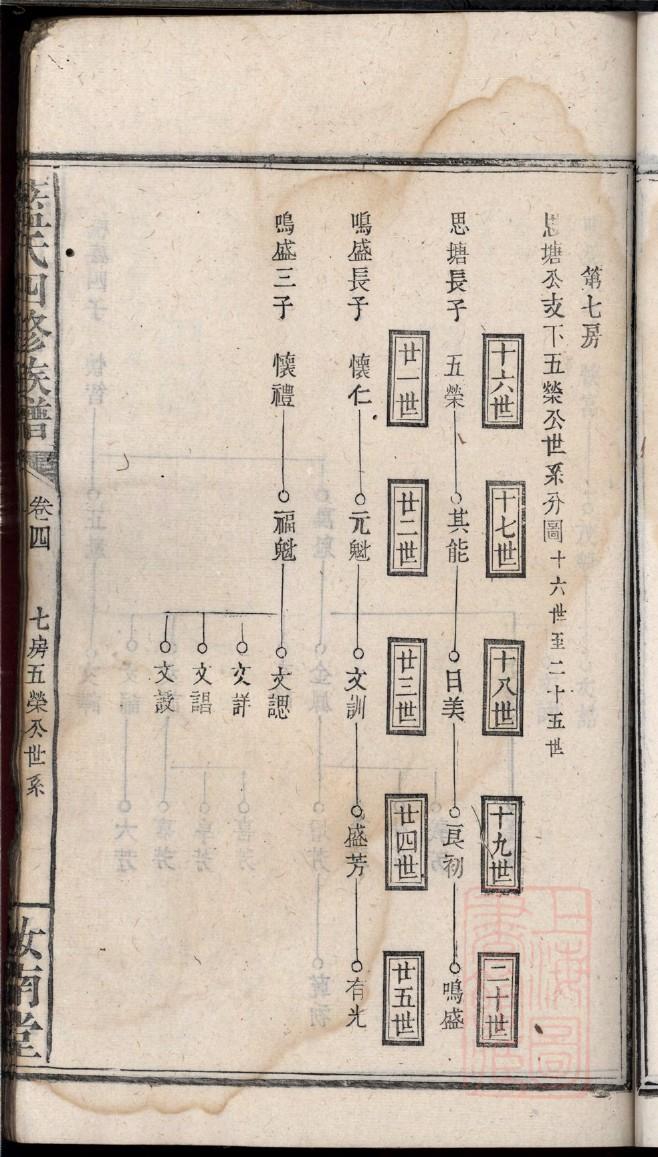 第七房
思塘公支下五榮公世系分圖十六世至二十五世
十六世
十七世
十八世
十九世
二十世
思塘長子 五榮 其能 日美 良初 鳴盛
廿一世
廿二世
廿三世
廿四世
廿五世
鳴盛長子 懷仁 元魁 文訓 盛芳 有光
鳴盛三子 懷禮 福魁 文諰
文詳
文誯
文設
氏四修族譜
卷四
七房五榮公世系
汝南堂
上海圖書館藏